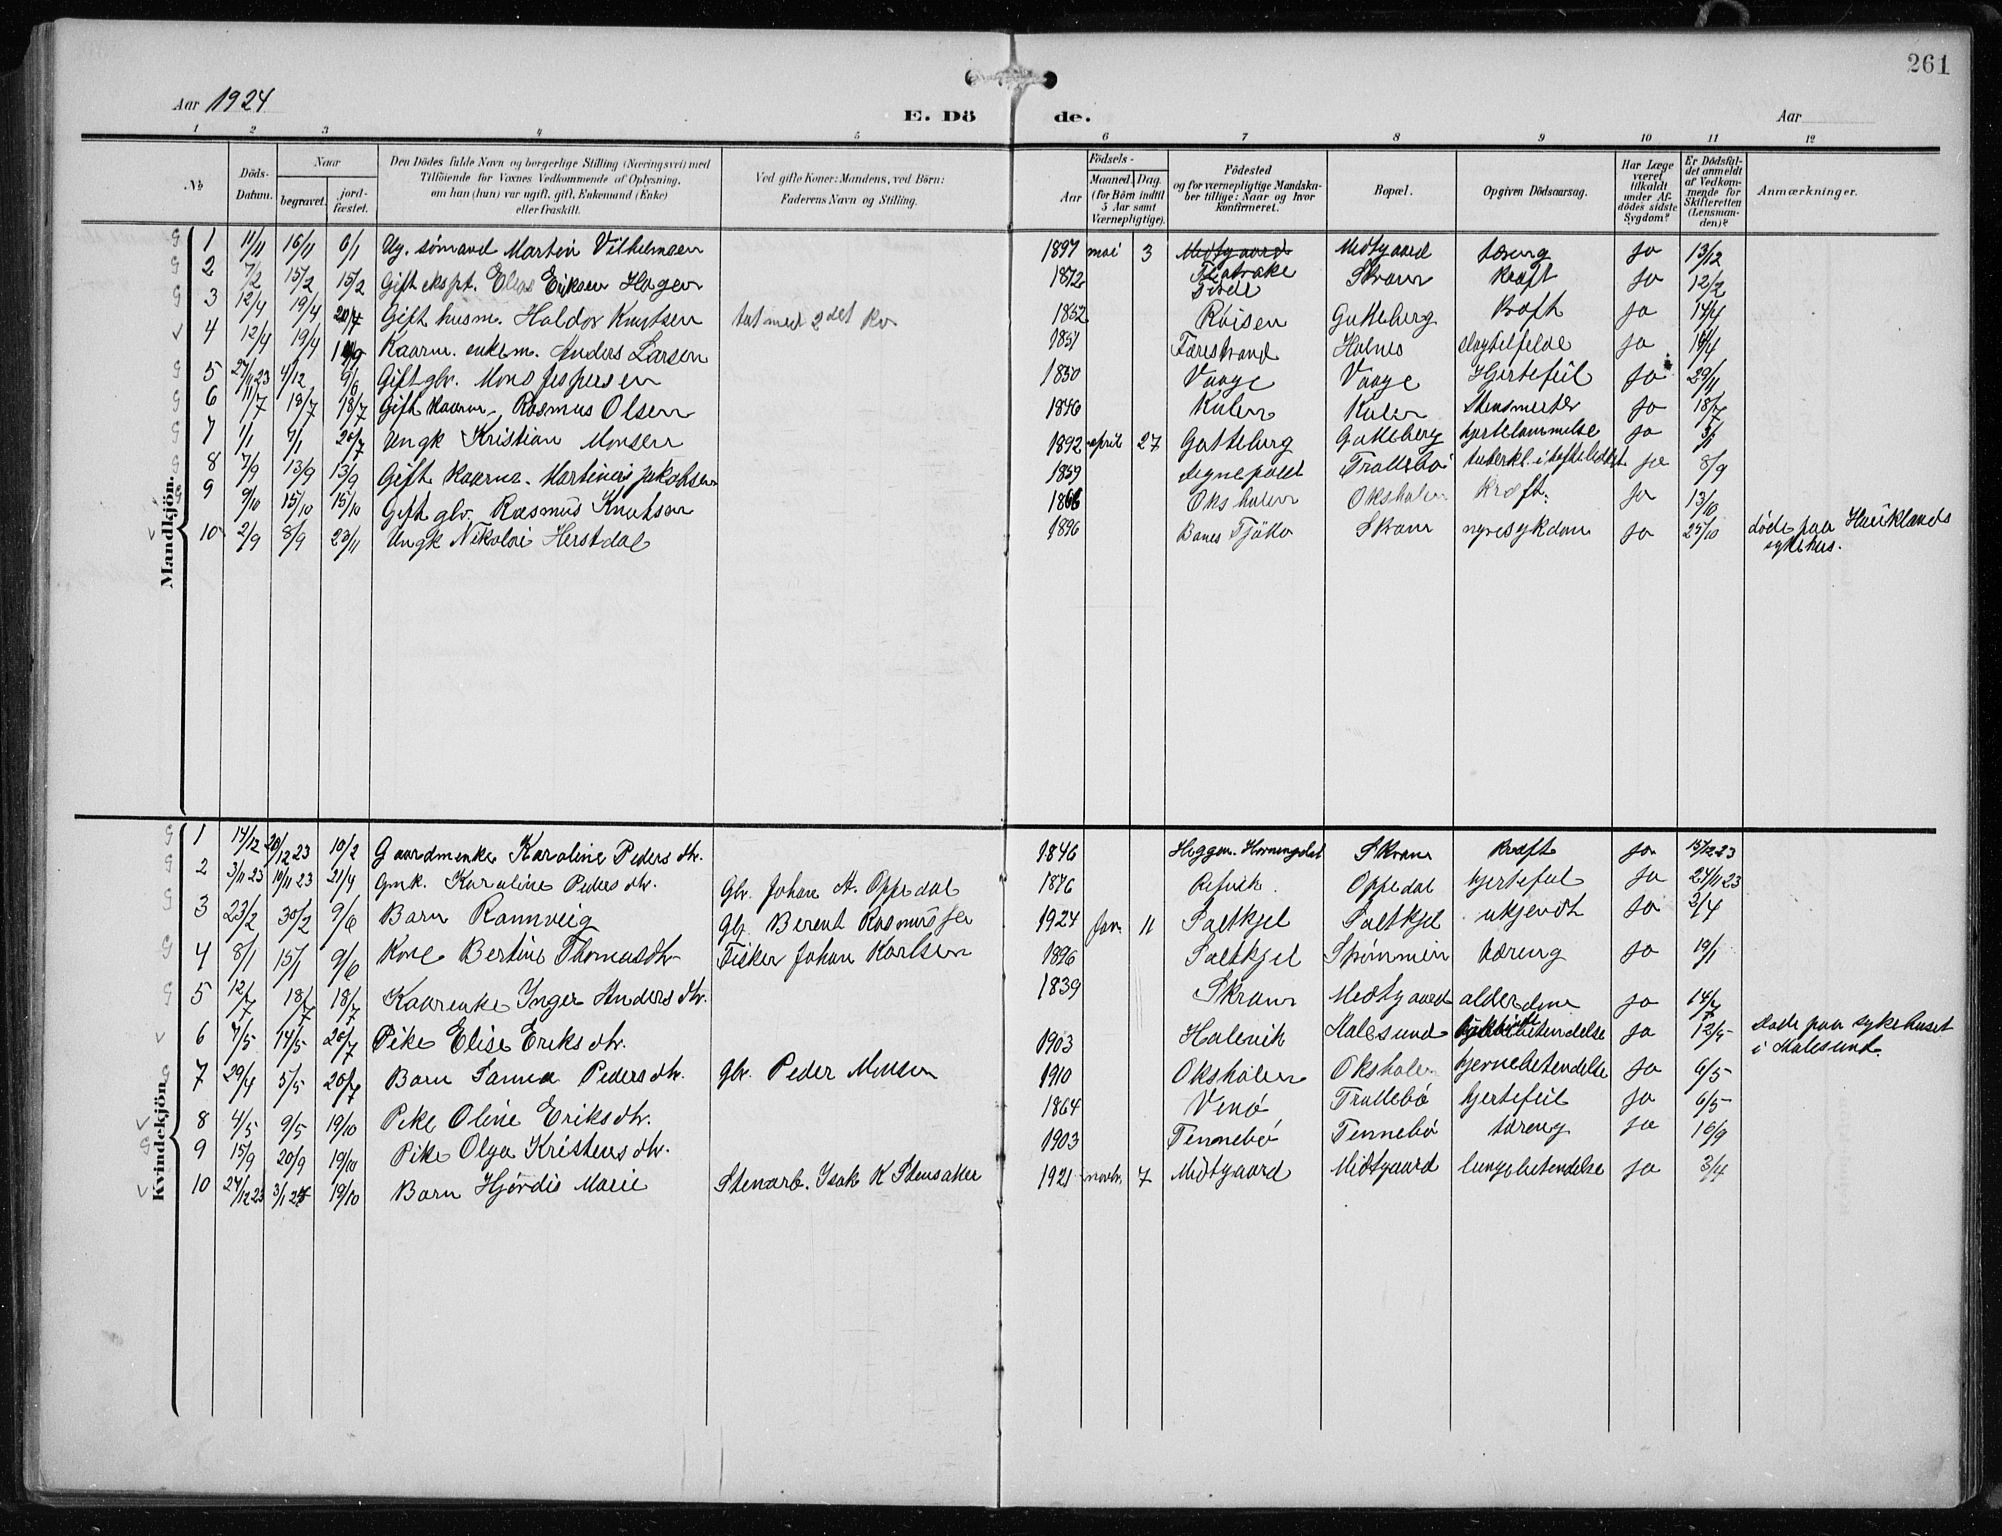 261
Aar 1924
E. Dö de.
Aar
1 2 3 4 5 6 7 8 9 10 11 12
No
Döds-Datum.
Naar
begravet.
jord-fæstet.
Den Dödes fulde Navn og borgerlige Stilling (Næringsvei) med
Tilföiende for Voxnes Vedkommende af Oplysning,
om han (hun) var ugift, gift, Enkemand (Enke)
eller fraskilt.
Ved gifte Koner: Mandens, ved Börn:
Faderens Navn og Stilling.
Födsels-
Aar
Maaned. Dag.
(for Börn indtil
5 Aar samt
Værnepligtige).
Födested
og for værnepligtige Mandska-
ber tillige: Naar og hvor
konfirmeret.
Bopæl.
Opgiven Dödsaarsag.
Har Læge
været
tilkaldt
under Af-
dödes sidste
Sygdom?
Er Dödsfal-
det anmeldt
af Vedkom-
mende for
Skifteretten
(Lensman-
den)?
Anmærkninger.
Mandkjön.
1 11/11 16/11 6/1 Ug. sømand Martin Vilhelmsen 1897 mai 3 Midtgaard Midtgaard tæring Ja 13/12
2 7/2 15/2 15/2 Gift ekspt. Elias Eriksen Hagen 1872 Flatrake Skram Kræft Ja 12/2
3 12/4 19/4 20/4 Gift husm. Haldor Knutsen tat med 2det kv 1852 Råisen Gatteberg Kræft ja 14/4
4 12/4 19/4 Kaarm. enkem. Anders Larsen 1851 Færestrand Holnes slagtilfelde ja 14/4
5 27/11 23 4/12 9/6 Gift gbr. Mons Jespersen 1850 Vaage Vaage Hjertefeil Ja 29/11
6 11/7 18/7 18/7 Gift kaarm. Rasmus Olsen 1846 Kulen Kulen Stensmerter Ja 18/7
7 1/1 9/1 20/7 Ungk Kristian Monsen 1892 april 27 Gatteberg Gatteberg hjertelammelse ja 3/1
8 7/9 13/9 13/9 Gift kaarma. Martinus Jakobsen 1859 degnepold Trollebø tuberkl. i hofteleddet ja 8/9
9 9/10 15/10 15/10 Gift gbr. Rasmus Knutsen 1866 Oksholen Oksholen Kræft. Ja 13/10
10 2/9 8/9 23/11 Ungk Nikolai Herstdal 1896 Skram nyresykdom Ja 25/10 døde paa Hauklands
sykehus.
Kvindekjön.
1 14/12 20/12 23 10/2 Gaardmenke Karoline Pedersdtr. 1846 Heggen. Hornindal Skram Kræft Ja 15/12 23
2 3/11 23 10/11 23 21/4 Gmk. Karoline Pedersdtr. Gbr. Johan A. Oppedal 1876 Refvik. Oppedal hjertefeil Ja 24/11 23
3 23/2 30/2 9/6 Barn Rannveig Gbr. Berent Rasmussen 1924 Jan. 11 Saltkjel Saltkjel ukjendt Ja 2/4
4 8/1 15/1 9/6 Kone Bertine Thomasdtr Fisker Johan Karlsen 1896 Saltkjel Strømmen tæring Ja 19/1
5 12/7 18/7 18/7 Kaarenke Inger Andersdtr. 1839 Skram Midtgaard alderdom ja 14/7
6 7/5 14/5 20/7 Pike Elise Eriksdtr. 1903 Halevik Aalesund ja 12/5 Døde paa sykehuset
i Aalesund.
7 29/4 5/5 20/7 Barn Sanna Pedersdtr. Gbr. Peder Monsen 1910 Oksholen Oksholen hjernebetendelse Ja 6/5
8 4/5 9/5 19/10 Pike Oline Eriksdtr. 1864 Venø Trollebø hjertefeil Ja 6/5
9 15/9 20/9 19/10 Pike Olga Kristensdtr. 1903 Tennebø Tennebø tæring Ja 16/9
10 27/12 23 3/1 24 19/10 Barn Hjørdis Marie Stenarb. Isak K Stensaker 1921 novbr. 7 Midtgaard Midtgaard lungebetendelse ja 3/4